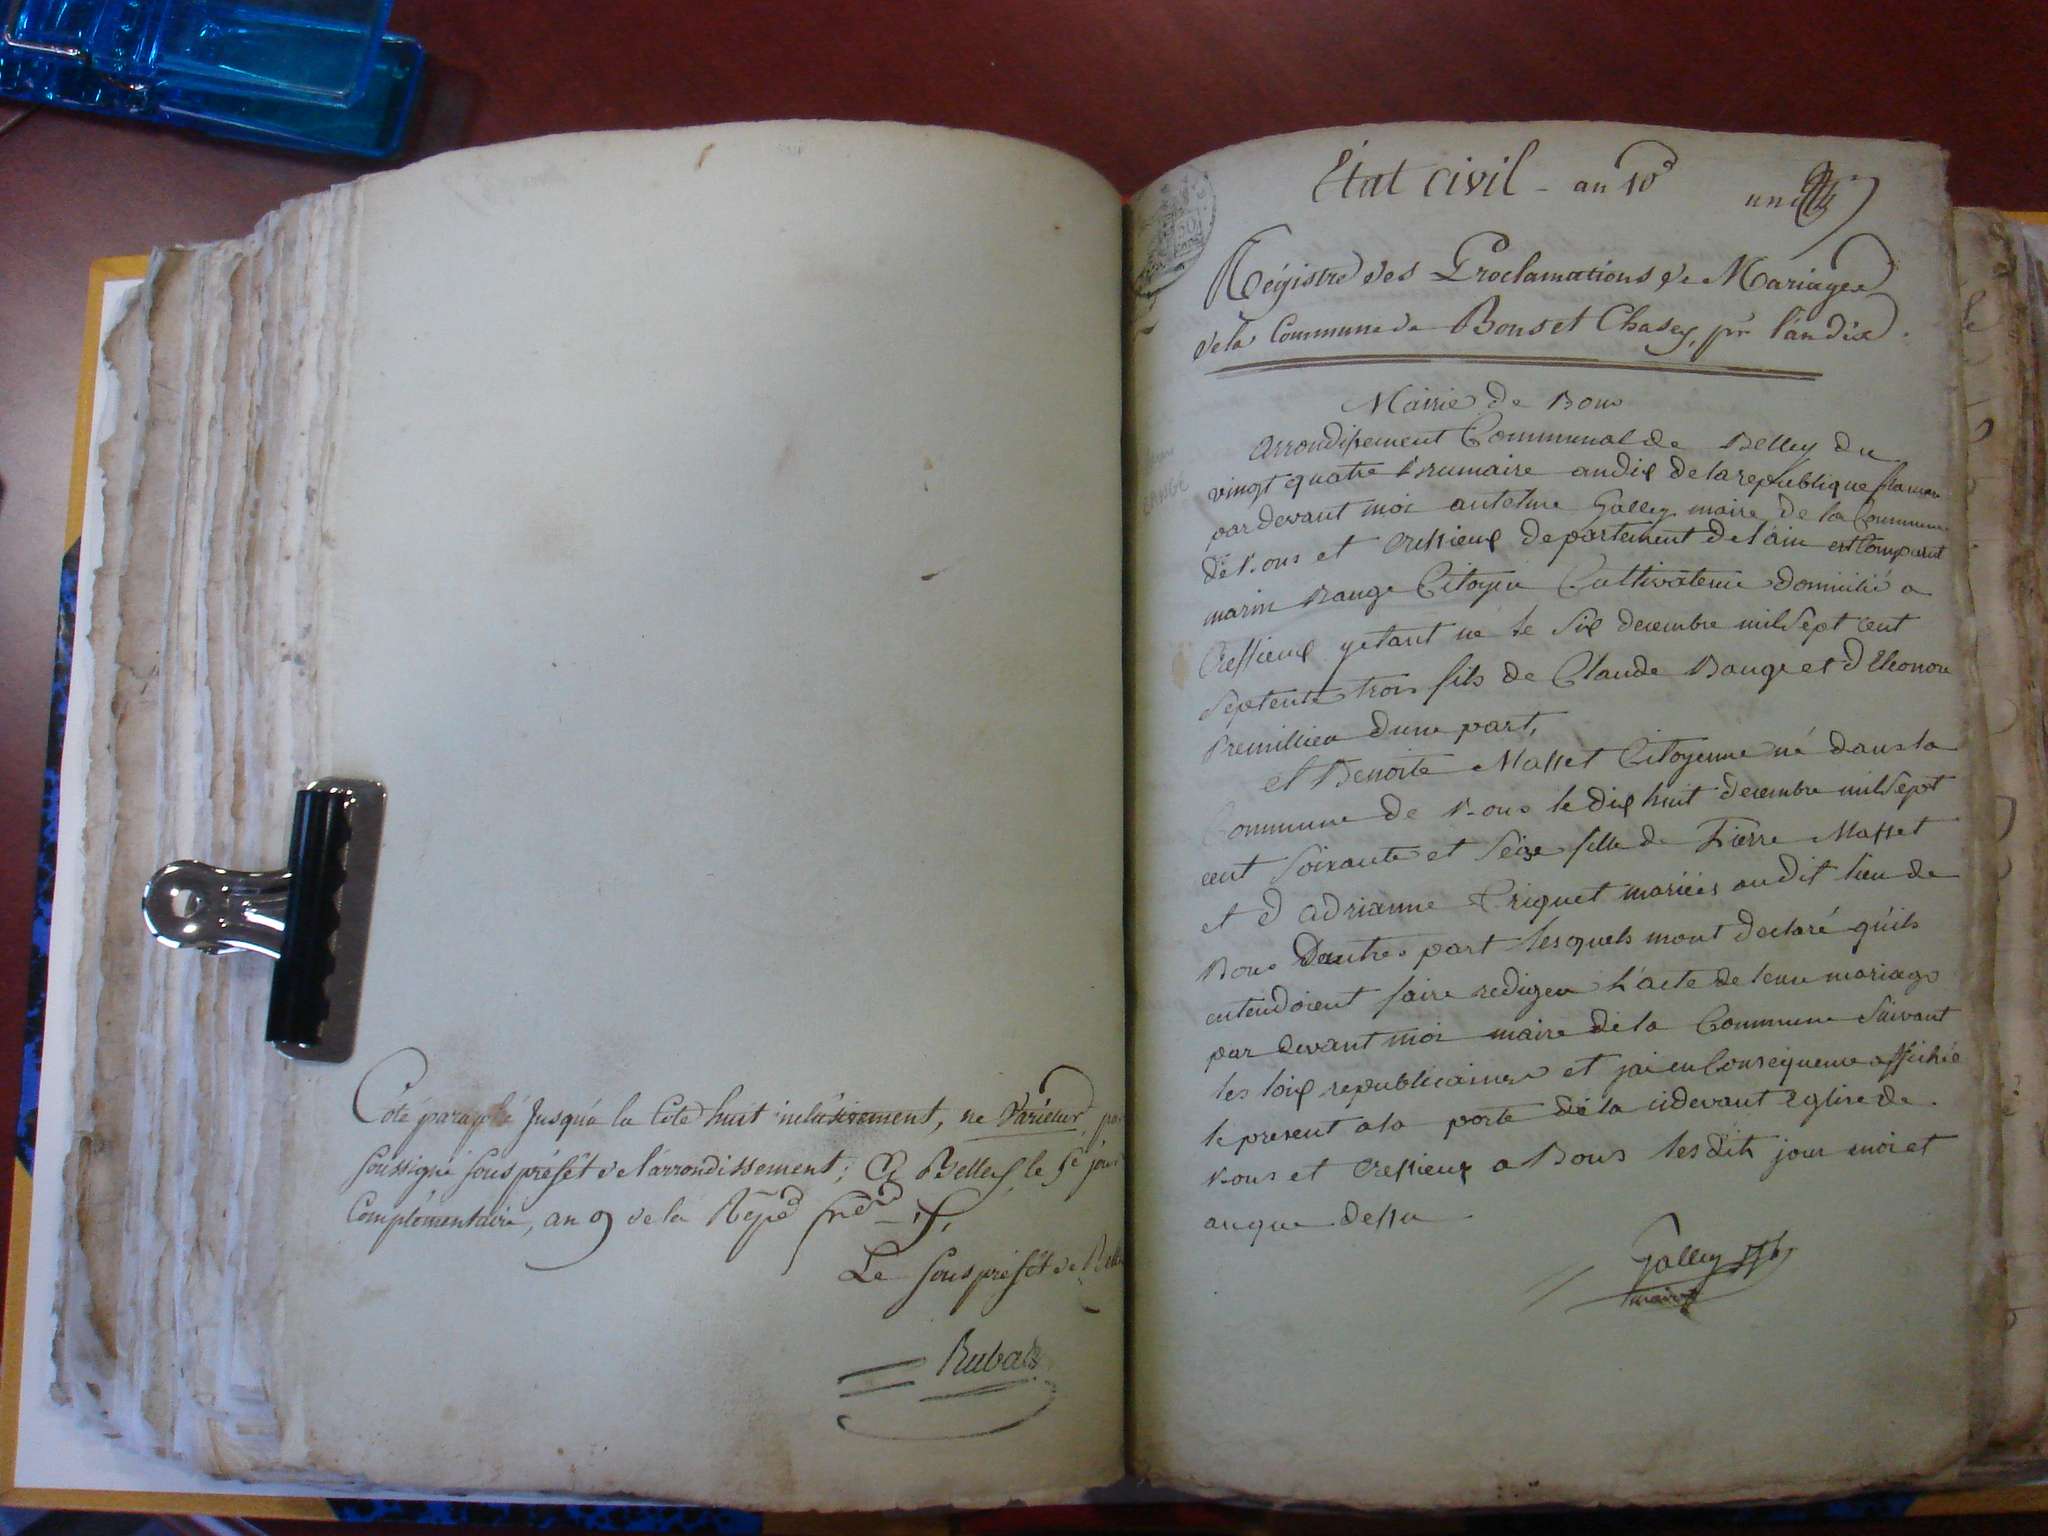 Coté paraphé Jusqu'à la Cote huit inclusivement, ne Varietur, par
soussigné sous préfét de l'arrondissement; à Belley, le 5e jour
Complémentaire, an 9 de la Répe frse
Le sous préfét de Belle
Rubat
État civil - an 10
un
Régistre des Proclamations de Mariages
de la Commune de Bons et Chasey, pr l'an dix.
Mairie de Bons
Arrondissement Communal de Belley du
vingt quatre Brumaire an dix de la republique francaise
par devant moi antelme Galley maire de la Commune
de Bons et Cressieux departement de l'ain est Comparut
marin Bauge Citoyen Cultivateur domicilié a
Cressieux y etant né le six decembre mil sept cent
septente trois fils de Claude Bauge et d'Eleonore
Premillieu dune part,
et Benoite Masset Citoyenne né dans la
Commune de Bons le dix huit decembre mil sept
cent soixante et seize fille de Pierre Masset
et d adrianne Triquet mariées audit lieu de
Bons Dautres part lesquels mont declaré qu'ils
entendoient faire rediger l'acte de leur mariage
par devant moi maire de la Commune suivant
les loix republicaines et jai en Consequence affiché
le present a la porte de la cidevant Eglise de
Bons et Cressieux a Bons lesdits jour mois et
an que dessu
Galley
maire